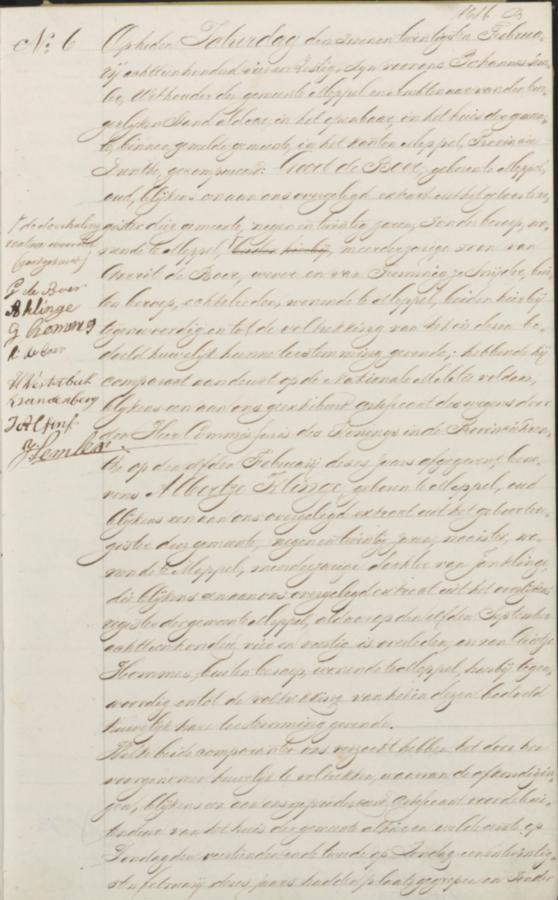 1616 B
No. 6
Op heden Saturdag den zevenentwintigsten Februa-
rij achttienhonderd vier en zestig, zijn voor ons Johannes Sem-
ler, Wethouder der gemeente Meppel en Ambtenaar van den bur-
gerlijken Stand aldaar, in het openbaar, in het huis der gemeen-
te, binnen gemelde gemeente, in het kanton Meppel, Provincie
Drenthe, gecompareerd: de Boer, geboren te Meppel,
oud, blijkens een aan ons overgelegd extract uit het geboortere-
gister dier gemeente, negenentwintig jaren, zonder beroep, wo-
nende te Meppel, meerderjarige zoon van
Gerrit de Boer, wever en van Kremming je Snijder, bui-
ten beroep, echtelieden, wonende te Meppel, beiden hierbij
tegenwoordig en tot de voltrekking van het in dezen be-
doeld huwelijk hunne toestemming gevende; hebbende hij
comparant aan de wet op de Nationale Militie voldaan,
blijkens een aan ons geexhibeerd certificaat deswegens door
den Heer Commissaris des Konings in de Provincie Dren-
the op den elfden Februarij dezes jaars afgegeven, bene-
vens Albertje Klinge, geboren te Meppel, oud
blijkens een aan ons overgelegd extract uit het geboorte-
gister dier gemeente, negen en twintig jaren, naaister, wo-
nende te Meppel, meerderjarige dochter van Jan Klinge,
die blijkens een aan ons overgelegd extract uit het overlijdens
register der gemeente Meppel, aldaar op den elfden September
achttienhonderd vier en veertig is overleden, en van
Hommes, buiten beroep, wonende te Meppel, hierbij tegen-
woordig en tot de voltrekking van het in dezen bedoeld
huwelijk hare toestemming gevende.
Welke beide comparanten ons verzocht hebben tot door hen
voorgenomen huwelijk te voltrekken, waarvan de afkondigin-
gen, blijkens een aan ons geproduceerd certificaat voor de hoof-
dingang van het huis der gemeente alhier en wel de eerste op
Zondag den veertienden en de tweede op Zondag eenentwintig-
sten februarij dezes jaars hadden plaats gegrepen en zonder
de doorhaling
van twee woorden
goedgekeurd
G de Boer
A Klinge
G Hommes
K de Boer
Kranenberg
J A Clink
J Semler